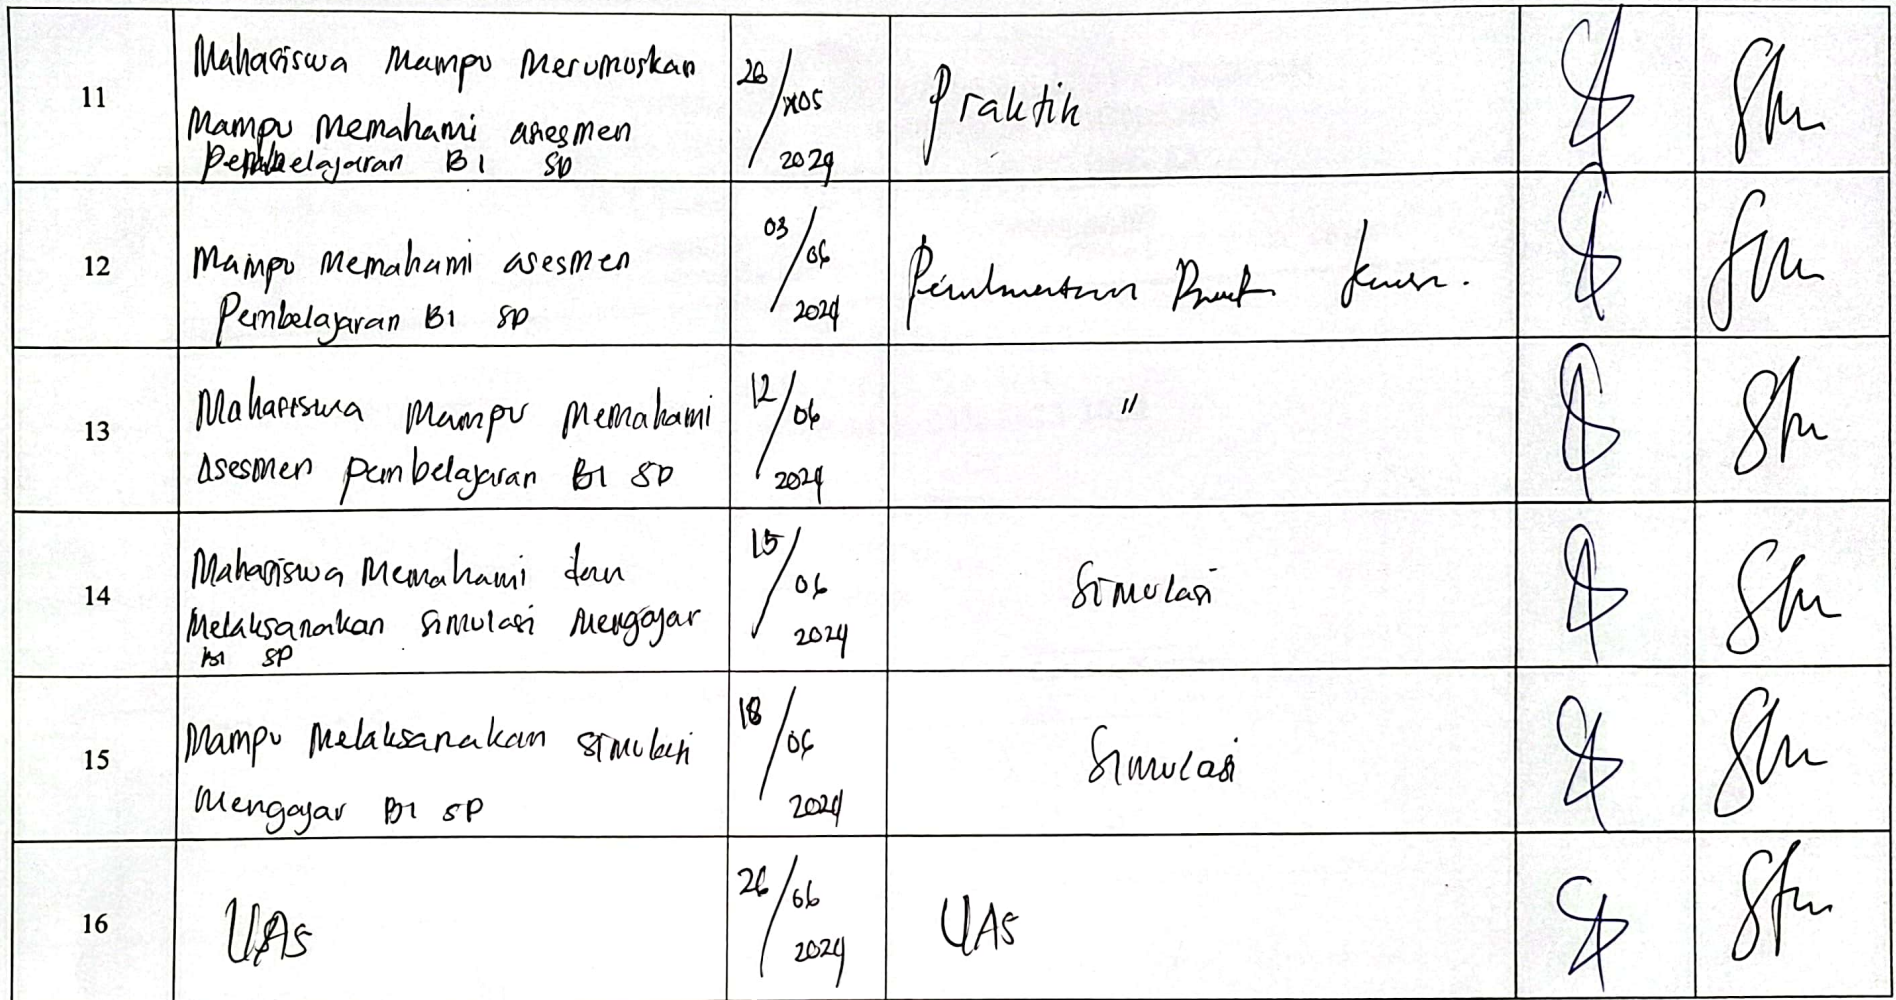 11
Mahasiswa Mampu Merumuskan
Mampu Memahami asesmen
Pembelajaran B1 SD
Praktik
2024
12
Mampu Memahami asesmen
Pembelajaran B1 SD
03/06
2024
13
Mahasiswa Mampu Memahami
Asesmen pembelajaran B1 SD
12/06
2024
"
14
Mahasiswa Memahami dan
Melaksanakan simulasi Mengajar
B1 SD
15/06
2024
Simulasi
15
Mampu Melaksanakan simulasi
Mengajar B1 SD
18/06
2024
Simulasi
16
UAS
26/06
2024
UAS